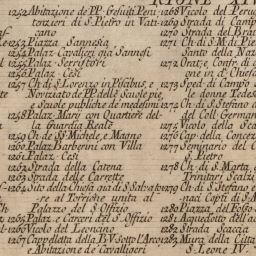 RIONE XIV
1252 Abitazione de PP. Gesuiti Peni
tenzieri di S. Pietro in Vati
cano
1253 Piazza Sannesia
1254 Palaz. Cavalieri già Sannesi
1255 Palaz. Serristori
1256 Palaz. Cesi
1257 Ch. di S. Lorenzo in Piscibus, e
Noviziato de PP. delle Scuole Pie
e Scuole publiche de medesimi
1258 Palaz. Mary con Quartiere del
la guardia Reale
1259 Ch. di SS. Michele, e Magno
1260 Palaz. Barberini con Villa
1261 Palaz. Cesi
1262 Strada della Catena
1263 Strada delle Carrette
1264 Sito della Chiesa già di S. Salvato
re al Torrione unita al
Palazzo del S. Offizio
1265 Palaz. e Carceri del S. Offizio
1266 Vicolo del Leoncino
1267 Cappelletta della B.V. sotto l'Arco
e Abitazione de Cavallegieri
1268 Vicolo del
1269 Strada di Camp
1270 Strada del
1271 Ch. di S. M. di
Santo della Na
1272 Orat. e Conf. di
ne in d. Chiesa
1273 Sped. di Campo
le donne Tedes
1274 Ch. di S. Stefano d
del Coll. German
1275 Vicolo della
1276 Cap. della Concez
1277 Seminario del C
S. Pietro
1278 Ch. di S. Marta, e
Trinitari Scalze
1279 Ch. di S. Stefano e
naci Capti di S.
1280 Piazza del Fosso
1281 Aquedotto dell' a
1282 Strada Scacza
1283 Mura della Città
S. Leone IV.